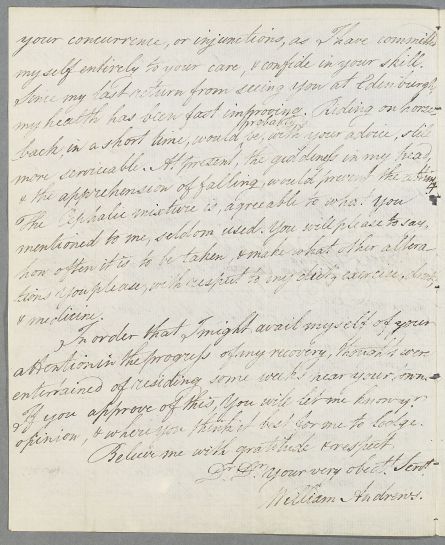 your concurrence, or injunctions, as I have committed
myself entirely to your care, & confide in your skill.
Since my last return from seeing you at Edinburgh,
my health has been fast improving. Riding on horse-
probably
back, in a short time, would be, with your advice, still
more serviceable. At present, the giddiness in my head,
& the apprehension of falling, would prevent the
The Cephalic mixture is, agreeable to what You
mentioned to me, seldom used. You will please to say,
how often it is to be taken, & make what other altera-
tions You please, with respect to my diet, exercise,
& medicine.
In order that I might avail myself of your
attention in the progress of my recovery, thoughts were
entertained of residing some weeks near your
If you approve of this, You will let me know yr.
opinion, & where You think it best for me to lodge.
Believe me with gratitude & respect
Dr. Sr. Your very obedt. Servt.
William Andrews.